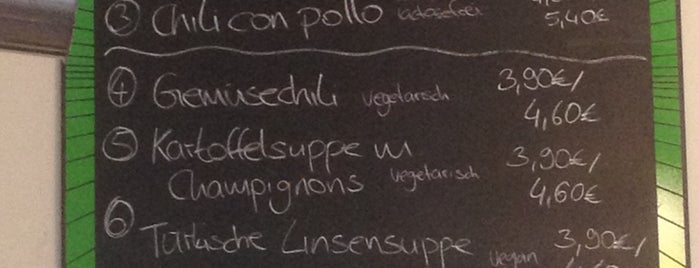 ③ Chili con pollo lactosefrei
5,40€
④ Gemüsechili vegetarisch 3,90€/
4,60€
⑤ Kartoffelsuppe m 3,90€/
Champignons vegetarisch 4,60€
⑥
Türkische Linsensuppe vegan 3,90€/